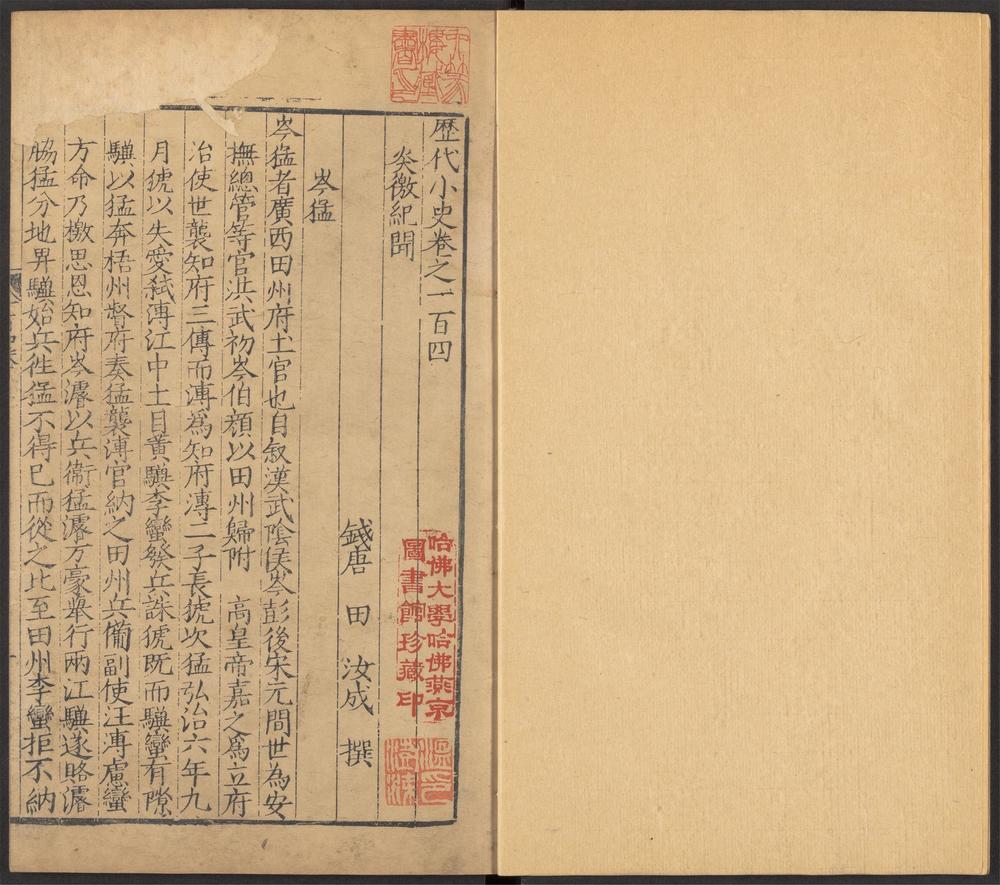 歷代小史卷之一百四
炎徼紀聞
錢唐 田 汝成 撰
岑猛
岑猛者廣西田州府土官也自叙漢武陰侯岑彭後宋元間世為安
撫總管等官洪武初岑伯顏以田州歸附 高皇帝嘉之為立府
治使世襲知府三傳而溥爲知府溥二子長猇次猛弘治六年九
月猇以失愛弒溥江中土目黃驥李蠻發兵誅猇既而驥蠻有隙
驥以猛奔梧州督府奏猛襲溥官納之田州兵備副使汪溥慮蠻
方命乃檄思恩知府岑濬以兵衛猛濬方豪舉行兩江驥遂賂濬
脇猛分地畀驥始兵徃猛不得已而從之比至田州李蠻拒不納
哈佛大學哈佛燕京
圖書館珍藏印